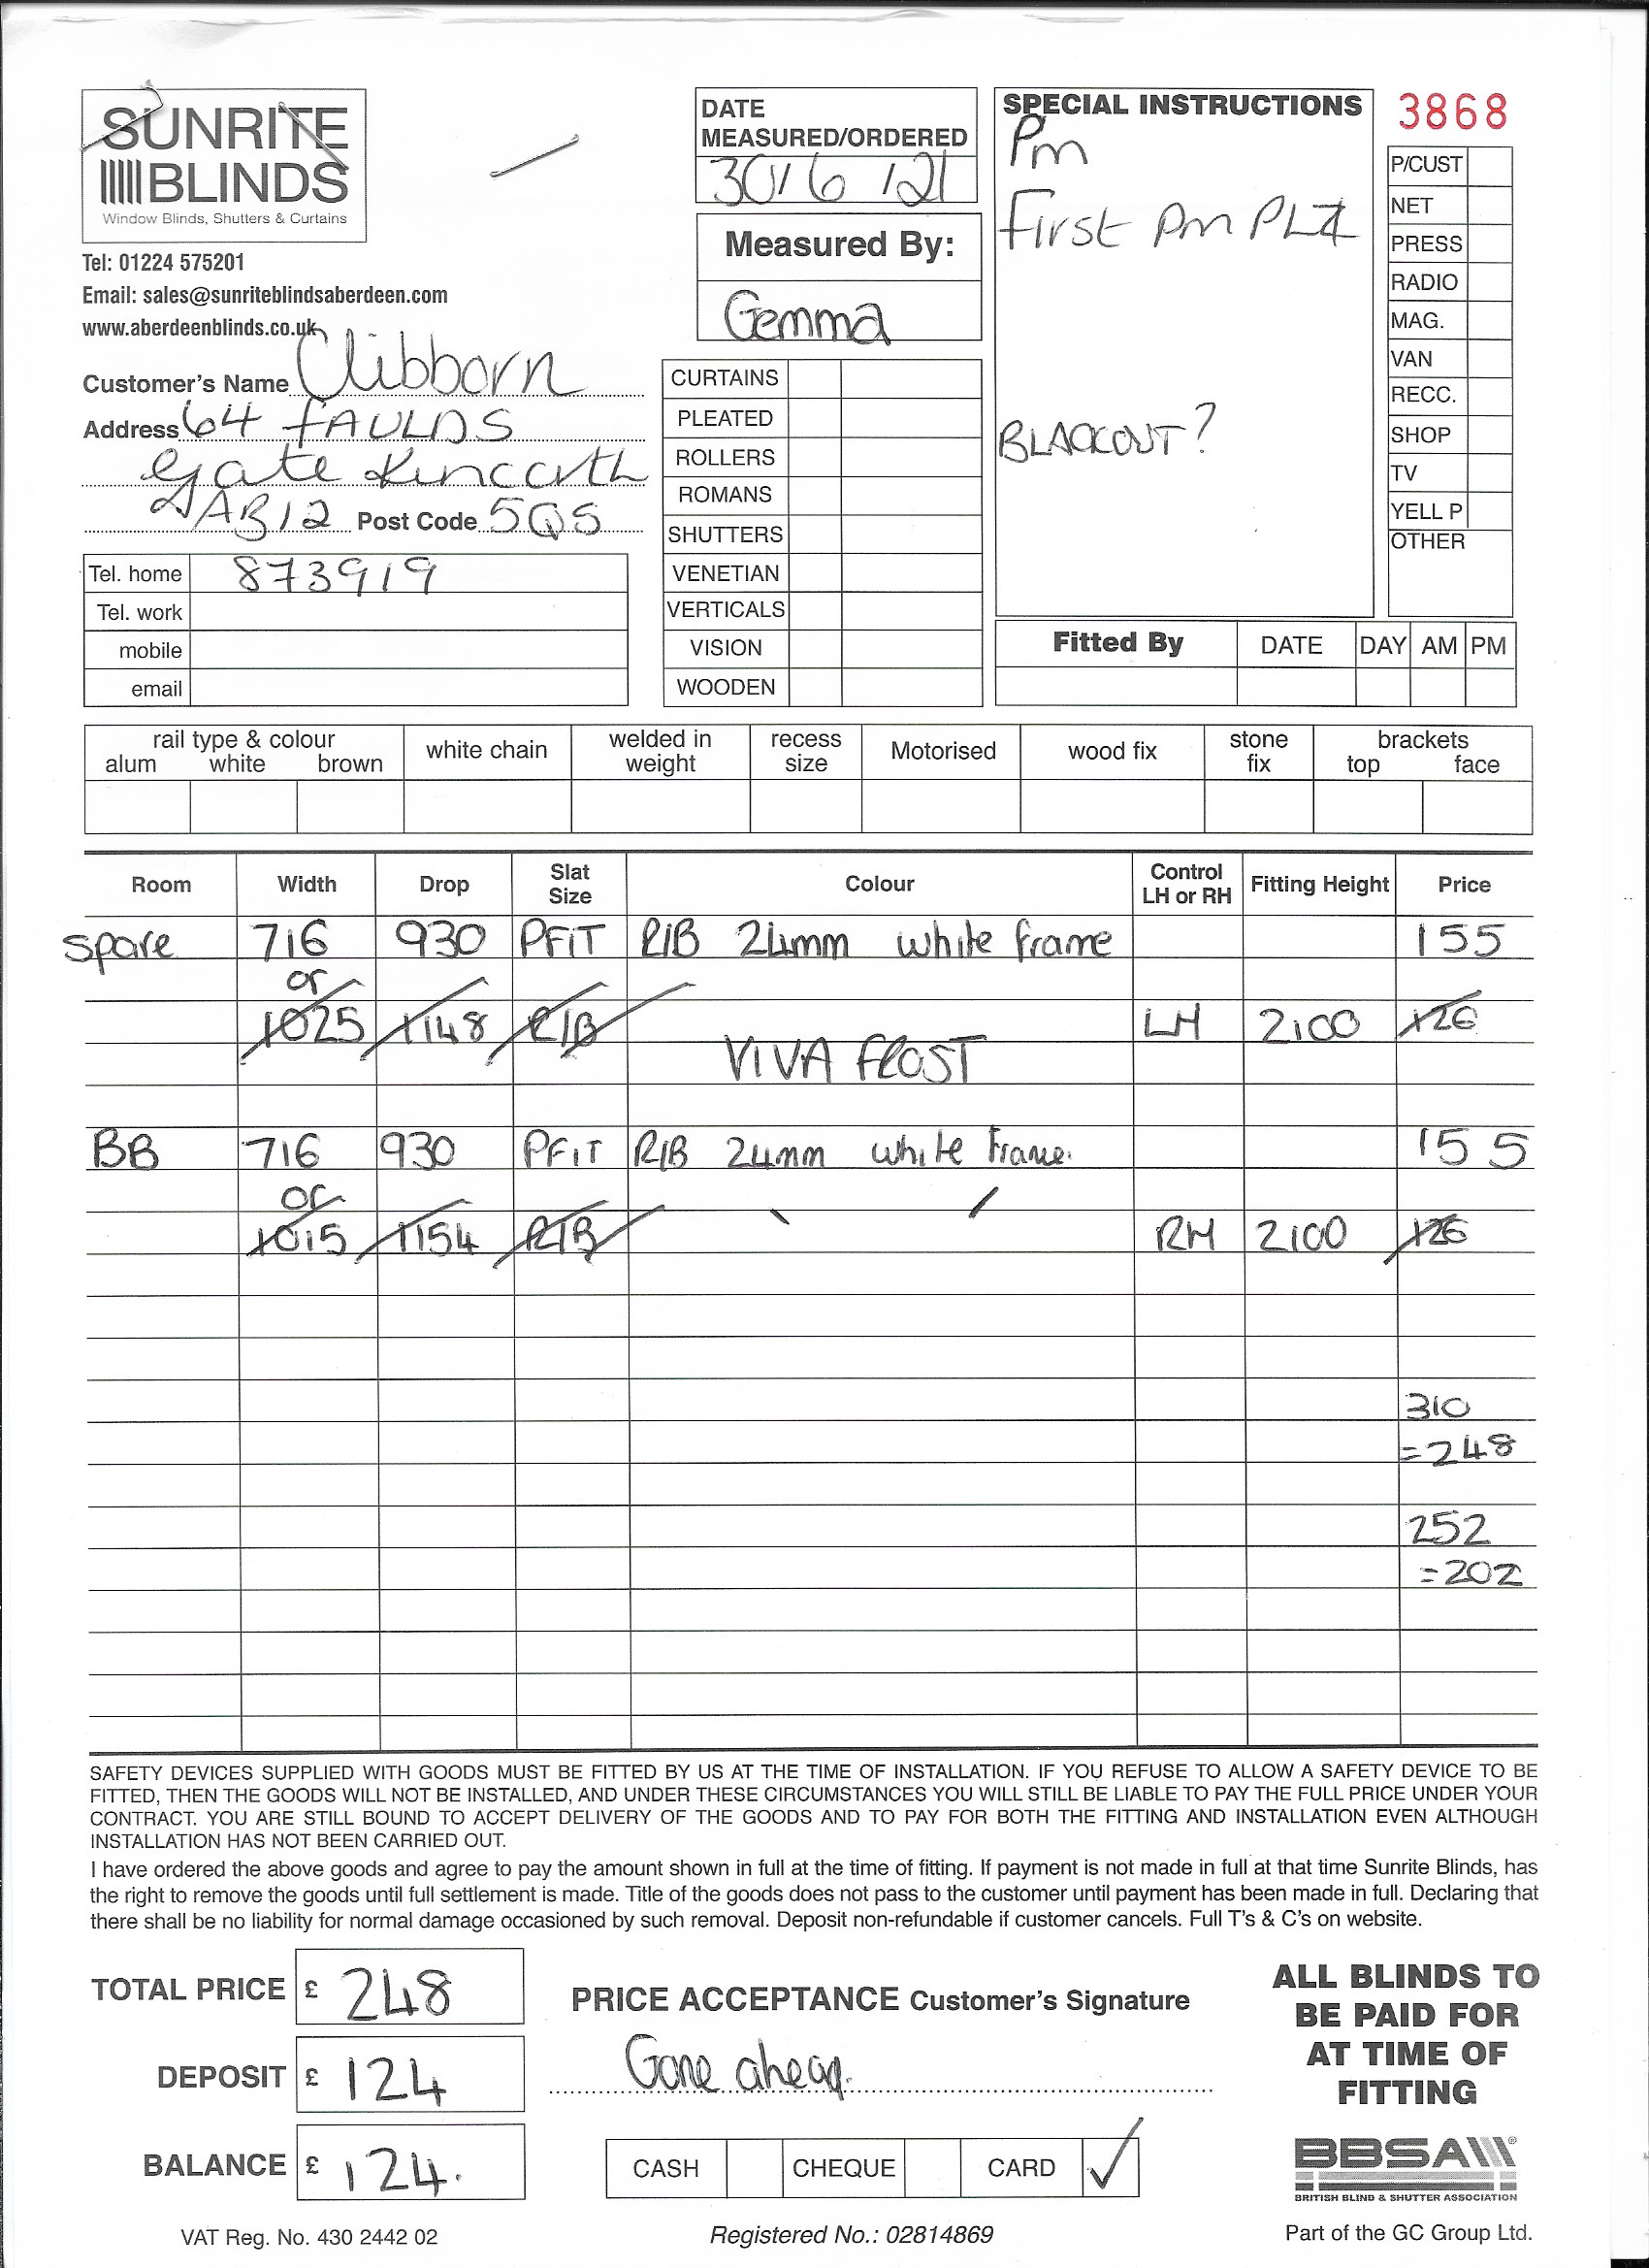 SUNRITE
BLINDS
Window Blinds, Shutters & Curtains
Tel: 01224 575201
Email: sales@sunriteblindsaberdeen.com
www.aberdeenblinds.co.uk
Customer's Name Clibborn
Address 64 FAULDS
Gate Kincorth
AB12 Post Code 5QS
Tel. home 873919
Tel. work
mobile
email
DATE
MEASURED/ORDERED
30/6/21
Measured By:
Gemma
CURTAINS
PLEATED
ROLLERS
ROMANS
SHUTTERS
VENETIAN
VERTICALS
VISION
WOODEN
SPECIAL INSTRUCTIONS
Pm
First pm PLZ
BLACKOUT?
3868
P/CUST
NET
PRESS
RADIO
MAG.
VAN
RECC.
SHOP
TV
YELL P
OTHER
Fitted By DATE DAY AM PM
rail type & colour
alum white brown
white chain
welded in
weight
recess
size
Motorised
wood fix
stone
fix
brackets
top face
Room Width Drop Slat Size Colour Control LH or RH Fitting Height Price
spare 716 930 PFIT RIB 24mm white frame 155
or
1025 1148 RIB LH 2100 126
VIVA FROST
BB 716 930 PFIT RIB 24mm white frame. 155
or
1015 1154 RIB RH 2100 126
310
=248
252
=202
SAFETY DEVICES SUPPLIED WITH GOODS MUST BE FITTED BY US AT THE TIME OF INSTALLATION. IF YOU REFUSE TO ALLOW A SAFETY DEVICE TO BE
FITTED, THEN THE GOODS WILL NOT BE INSTALLED, AND UNDER THESE CIRCUMSTANCES YOU WILL STILL BE LIABLE TO PAY THE FULL PRICE UNDER YOUR
CONTRACT. YOU ARE STILL BOUND TO ACCEPT DELIVERY OF THE GOODS AND TO PAY FOR BOTH THE FITTING AND INSTALLATION EVEN ALTHOUGH
INSTALLATION HAS NOT BEEN CARRIED OUT.
I have ordered the above goods and agree to pay the amount shown in full at the time of fitting. If payment is not made in full at that time Sunrite Blinds, has
the right to remove the goods until full settlement is made. Title of the goods does not pass to the customer until payment has been made in full. Declaring that
there shall be no liability for normal damage occasioned by such removal. Deposit non-refundable if customer cancels. Full T's & C's on website.
TOTAL PRICE £ 248
DEPOSIT £ 124
BALANCE £ 124.
PRICE ACCEPTANCE Customer's Signature
Gone ahead.
CASH CHEQUE CARD ✓
ALL BLINDS TO
BE PAID FOR
AT TIME OF
FITTING
BBSA®
BRITISH BLIND & SHUTTER ASSOCIATION
VAT Reg. No. 430 2442 02
Registered No.: 02814869
Part of the GC Group Ltd.